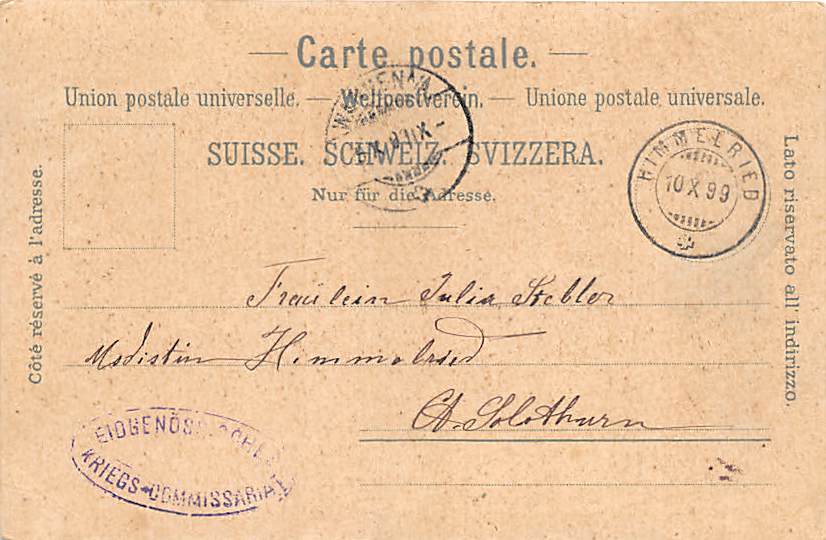 Carte postale.
Union postale universelle. — Weltpostverein. — Unione postale universale.
SUISSE. SCHWEIZ. SVIZZERA.
Nur für die Adresse.
Côté réservé à l'adresse.
Lato riservato all' indirizzo.
HIMMELRIED
10 X 99
Fräulein Julia Stebler
Modistin Himmelried
Ct. Solothurn
KRIEGS-COMMISSARIAT